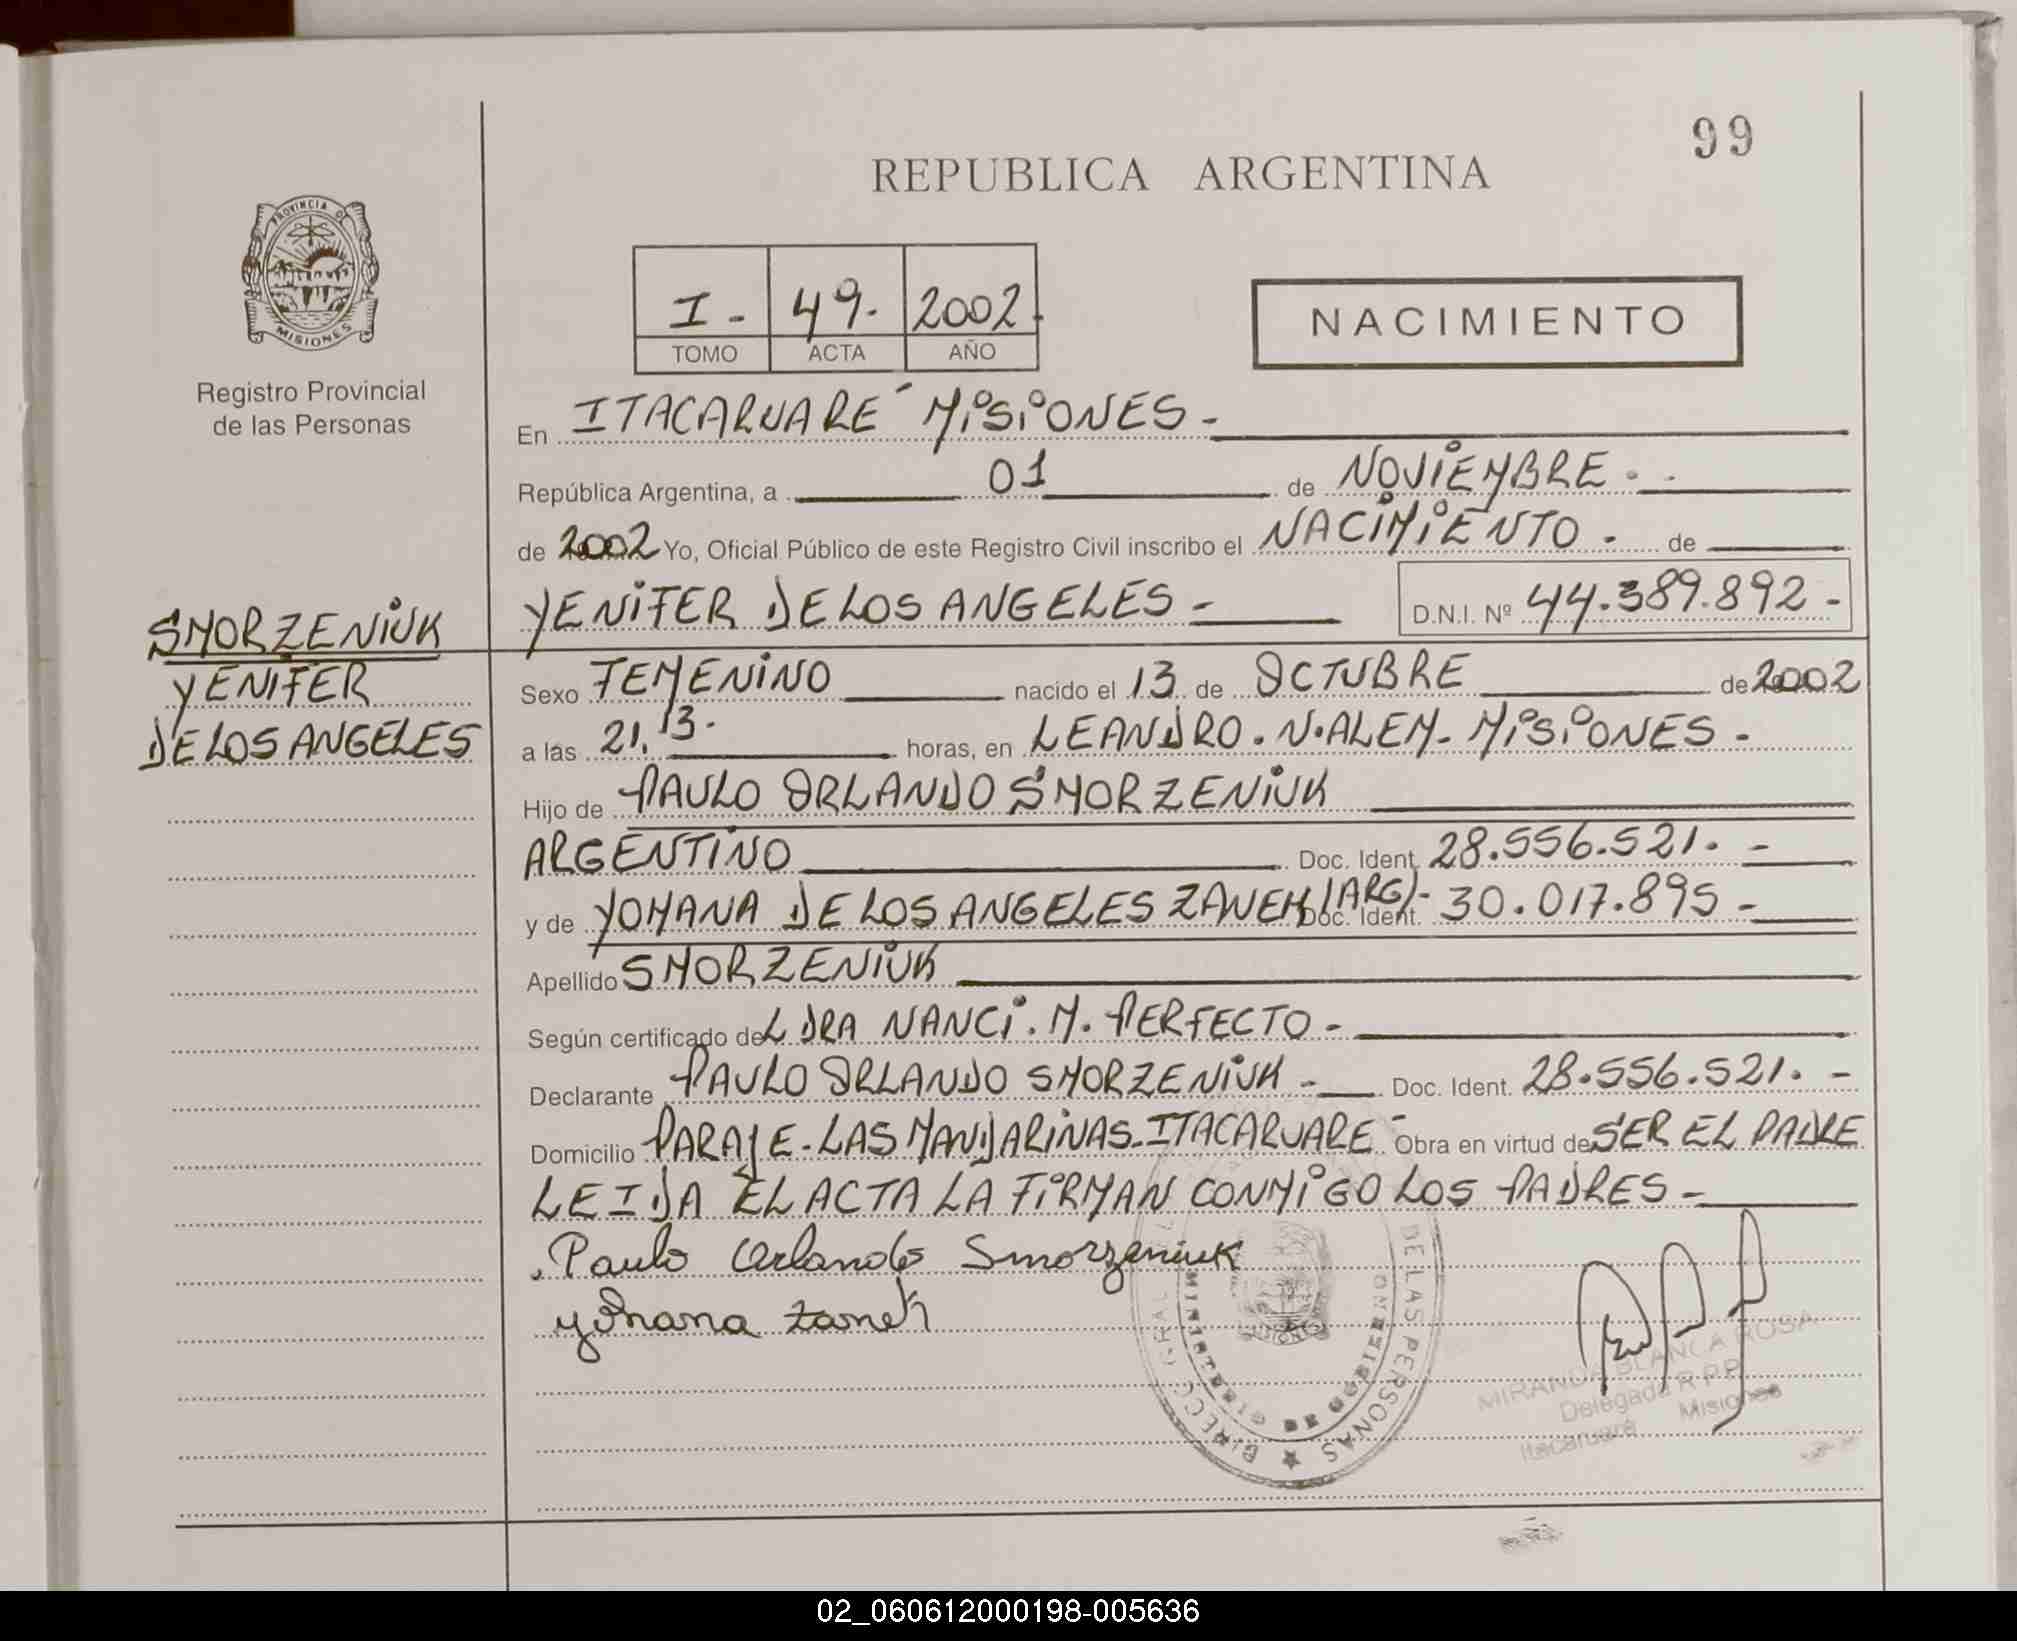 99
REPUBLICA ARGENTINA
PROVINCIA DE
MISIONES
Registro Provincial
de las Personas
I - 49. 2002.
TOMO ACTA AÑO
NACIMIENTO
En ITACARUARE´ MISIONES -
República Argentina, a 01 de NOVIEMBRE - -
de 2002 Yo, Oficial Público de este Registro Civil inscribo el NACIMIENTO - de
YENIFER DE LOS ANGELES - D.N.I. Nº 44.389.892 -
SMORZENIUK
YENIFER
DE LOS ANGELES
Sexo FEMENINO nacido el 13 de OCTUBRE de 2002
a las 21,13. horas, en LEANDRO. N. ALEM - MISIONES -
Hijo de PAULO ORLANDO SMORZENIUK
ARGENTINO Doc. Ident. 28.556.521. -
y de YOHANA DE LOS ANGELES ZANEK (ARG)- Doc. Ident. 30.017.895 -
Apellido SMORZENIUK
Según certificado de L DRA NANCI. M. PERFECTO -
Declarante PAULO ORLANDO SMORZENIUK - Doc. Ident. 28.556.521. -
Domicilio PARAJE - LAS MANDARINAS - ITACARUARE´ Obra en virtud de SER EL PADRE
LEIDA EL ACTA LA FIRMAN CONMIGO LOS PADRES -
Paulo Orlando Smorzeniuk
Yohana Zanek
DIRECC. GRAL. DE LAS PERSONAS
MINISTERIO DE GOBIERNO
MIRANDA BLANCA ROSA
Delegada R.P.P.
Itacaruaré Misiones
02_060612000198-005636